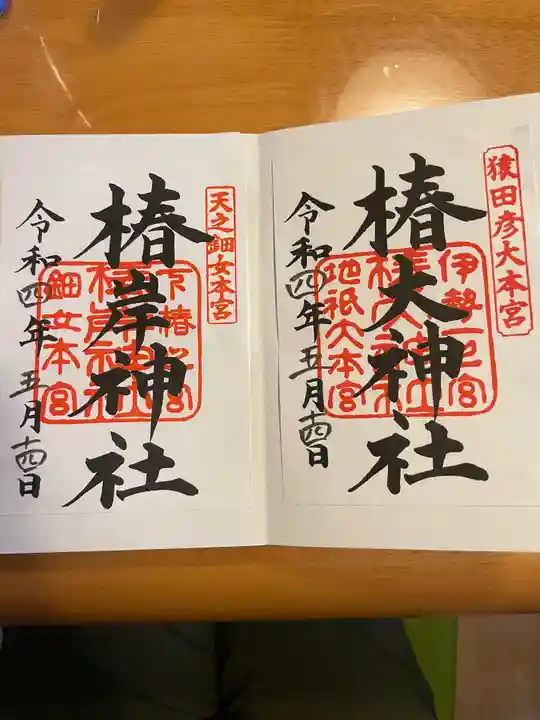 猿田彦大本宮
椿大神社
伊勢一之宮
地祇大本宮
令和四年五月十四日
天之鈿女本宮
椿岸神社
鈿女本宮
令和四年五月十四日